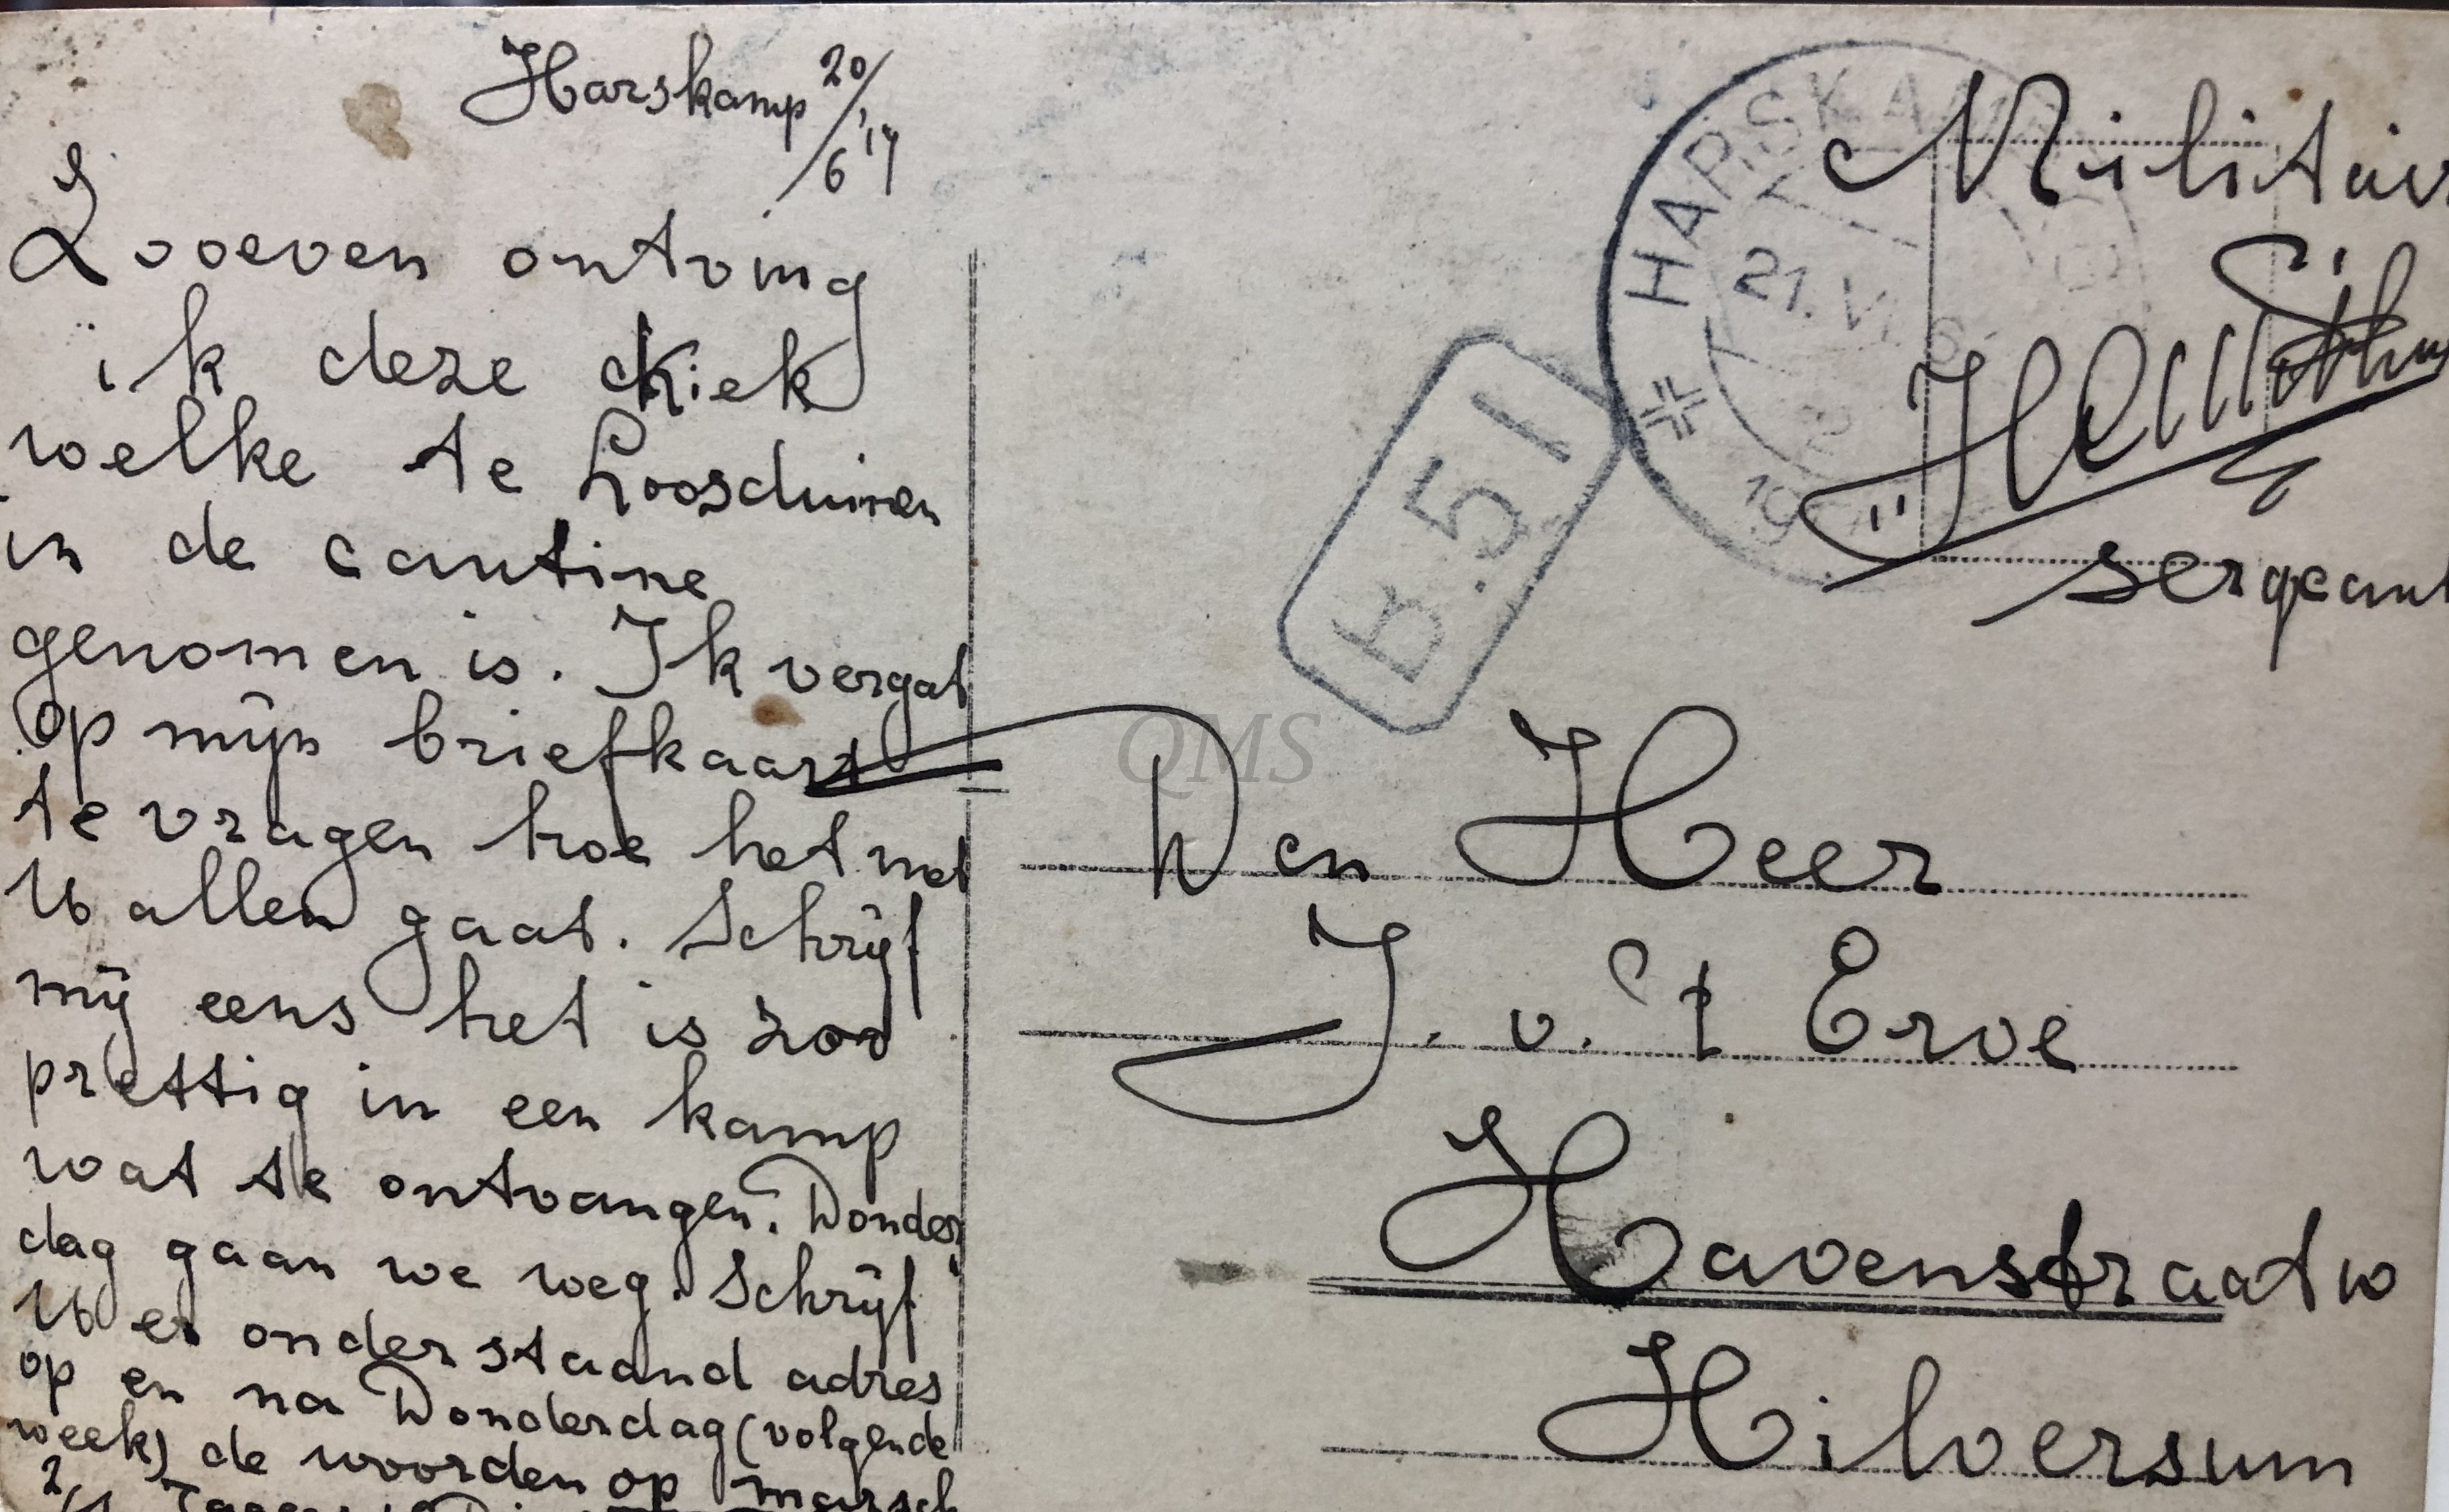 Harskamp 20/6 '17
Zooeven ontving
ik deze kiek
welke te Loosduinen
in de cantine
genomen is. Ik vergat
op mijn briefkaart
te vragen hoe het met
U allen gaat. Schrijf
mij eens het is zoo
prettig in een kamp
wat te ontvangen. Donder
dag gaan we weg. Schrijf
U er onderstaand adres
op en na Donderdag (volgende
week) de woorden op marsch
HARSKAMP
21.VI. 6
19
B.51
Militair
sergeant
QMS
Den Heer
J. v. 't Erve
Havenstraat w
Hilversum